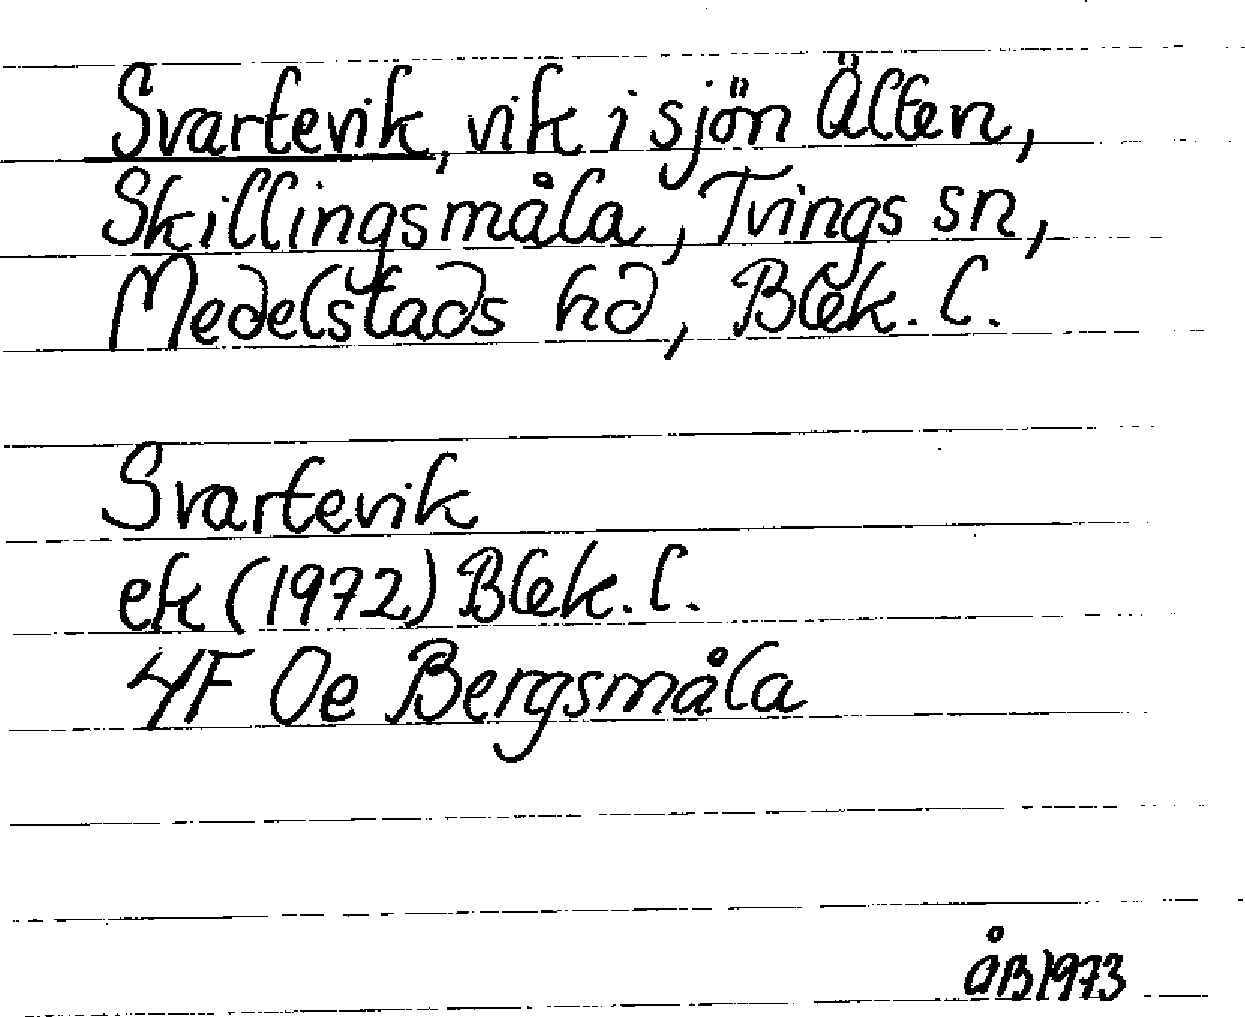 Svartevik, vik i sjön Älten,
Skillingsmåla, Tvings sn,
Medelstads hd, Blek. l.
Svartevik
ek (1972) Blek. l.
4F Oe Bergsmåla
åB 1973